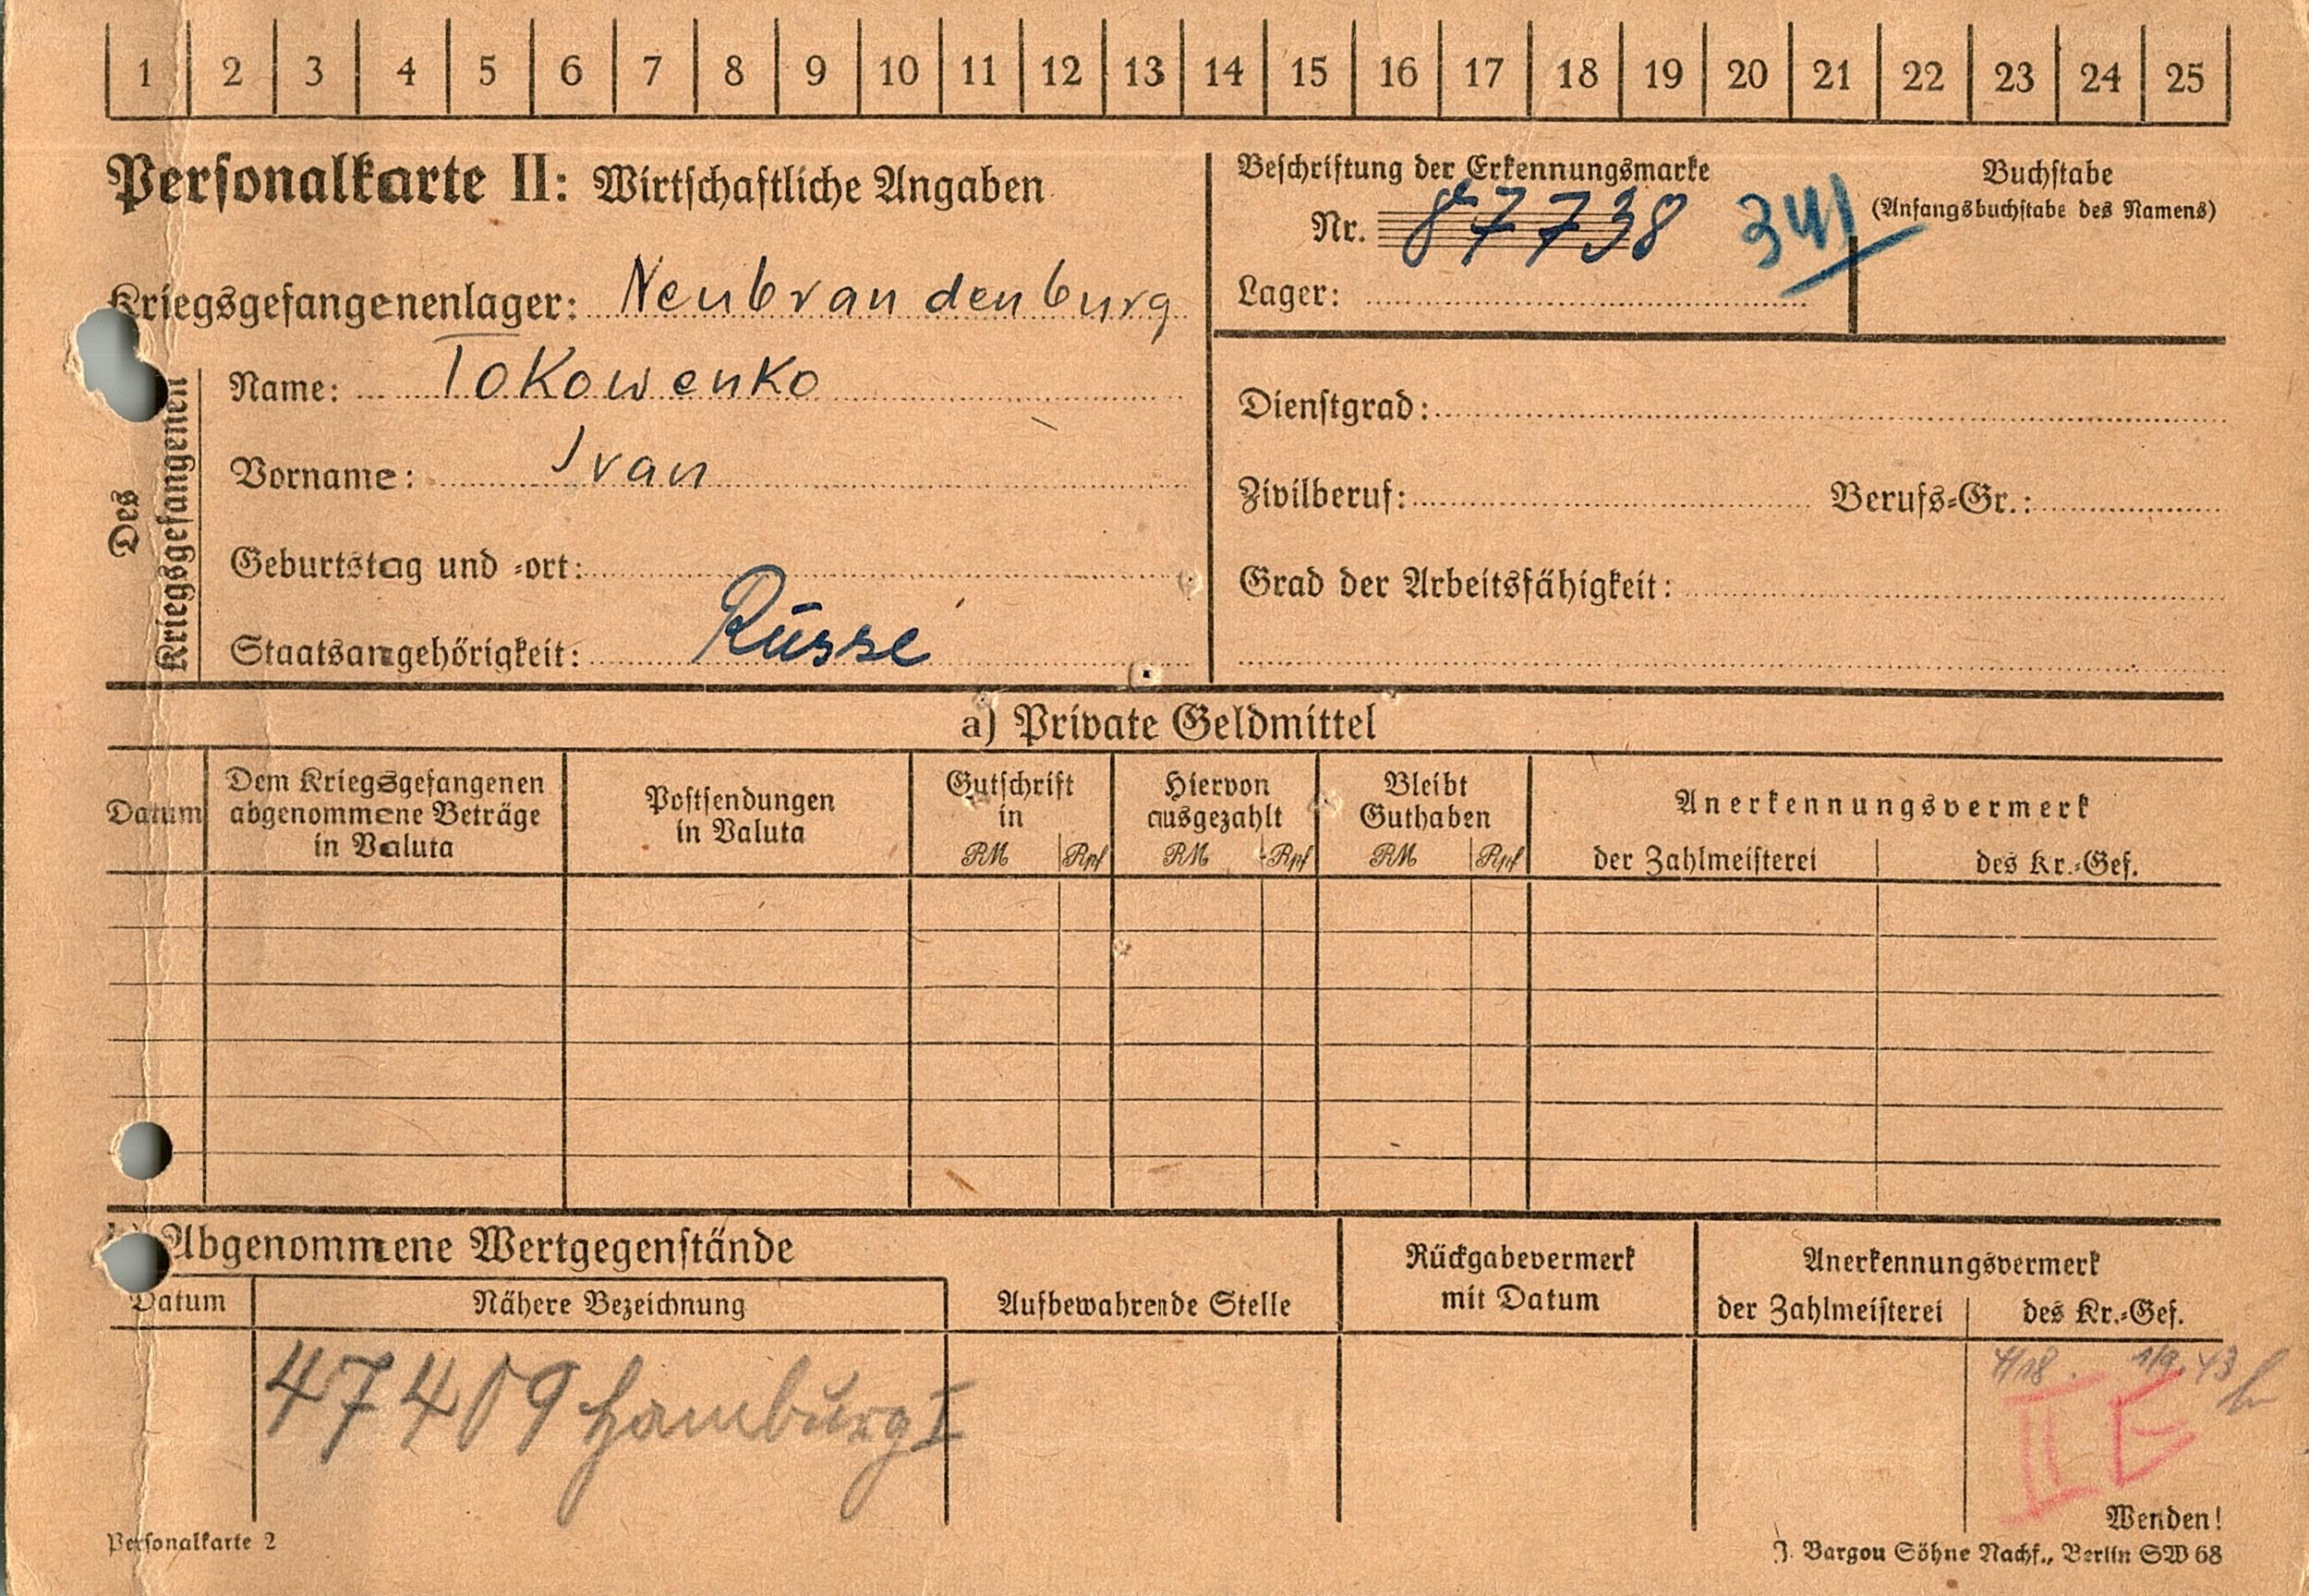 1 2 3 4 5 6 7 8 9 10 11 12 13 14 15 16 17 18 19 20 21 22 23 24 25
Personalkarte II: Wirtschaftliche Angaben
Beschriftung der Erkennungsmarke
Nr. 87738 341
Lager:
Buchstabe
(Anfangsbuchstabe des Namens)
Kriegsgefangenenlager: Neubrandenburg
Des Kriegsgefangenen
Name: Tokowenko
Vorname: Ivan
Geburtstag und -ort:
Staatsangehörigkeit: Russe
Dienstgrad:
Zivilberuf: Berufs-Gr.:
Grad der Arbeitsfähigkeit:
a) Private Geldmittel
Datum
Dem Kriegsgefangenen
abgenommene Beträge
in Valuta
Postsendungen
in Valuta
Gutschrift
in
RM Rpf
Hiervon
ausgezahlt
RM Rpf
Bleibt
Guthaben
RM Rpf
Anerkennungsvermerk
der Zahlmeisterei des Kr.-Gef.
Abgenommene Wertgegenstände
Datum
Nähere Bezeichnung
Aufbewahrende Stelle
Rückgabevermerk
mit Datum
Anerkennungsvermerk
der Zahlmeisterei des Kr.-Gef.
47409 Hamburg I
1/9.43
II E
Wenden!
Personalkarte 2
J. Bargou Söhne Nachf., Berlin SW 68